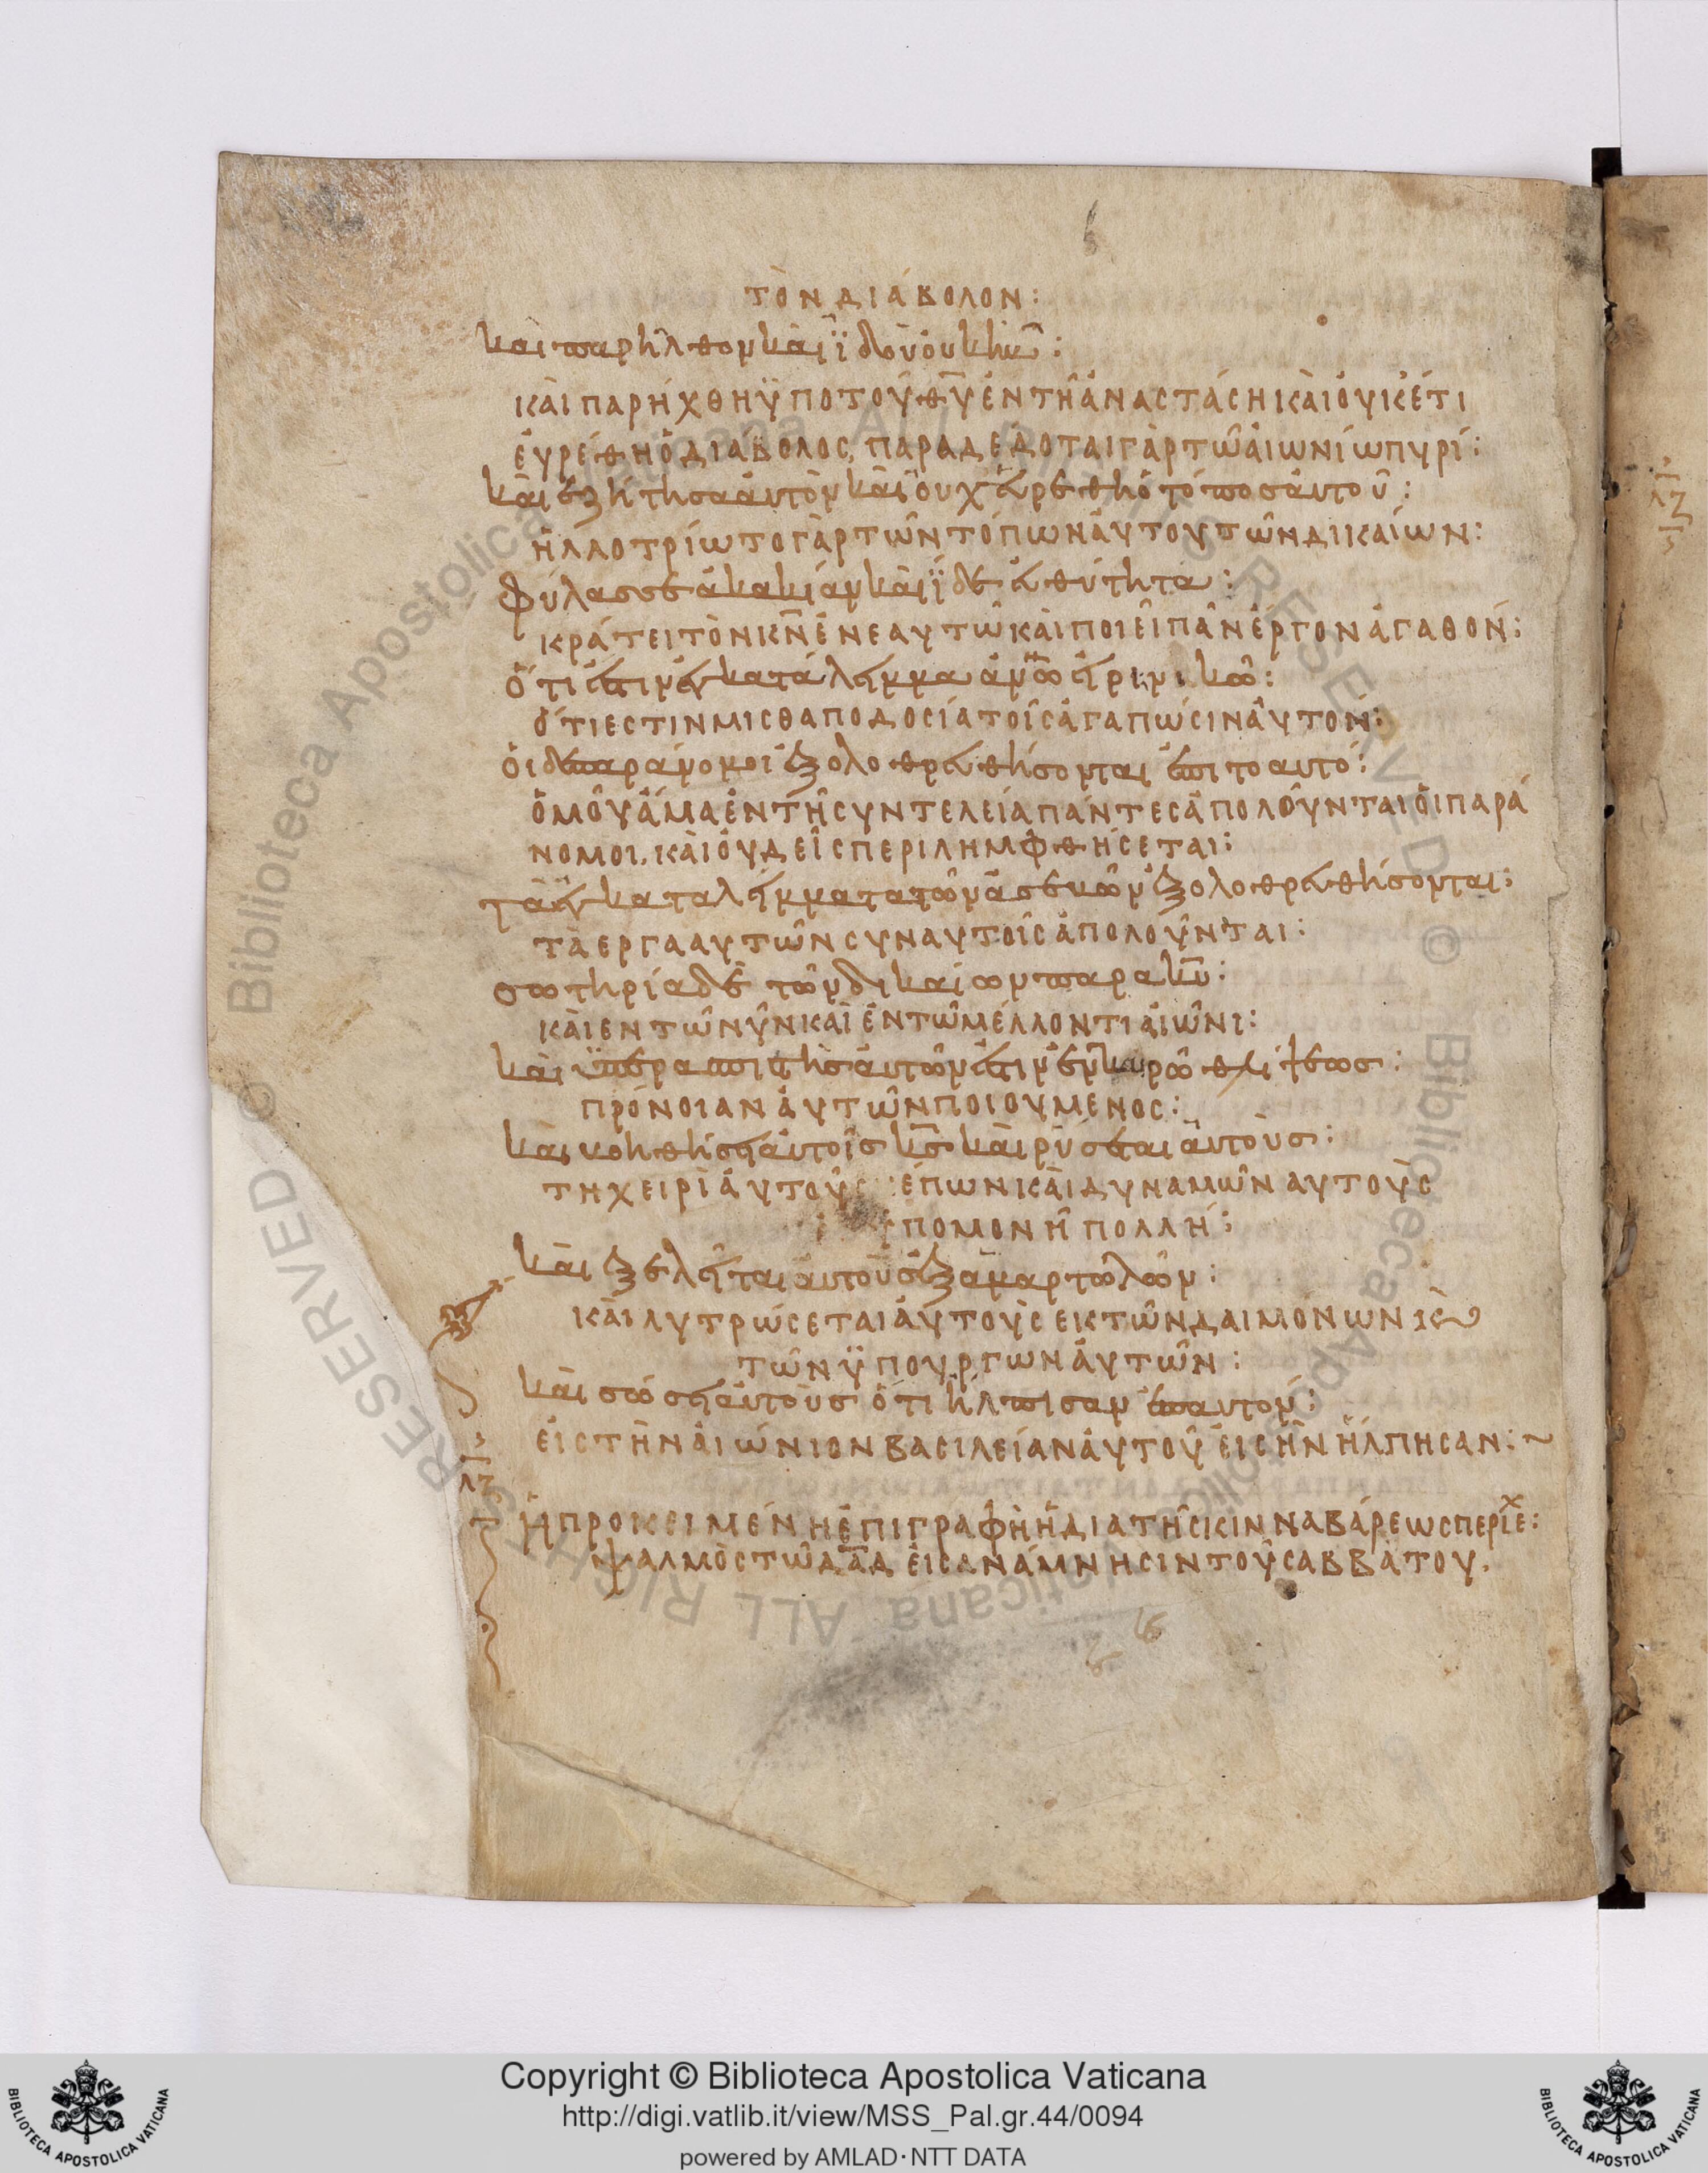 τὸν διάβολον:
καὶ παρῆλθον καὶ ϊδοὺ οὐκ ἦν:
καὶ παρήχθη ϋπο τοῦ θῡ ἐν τῆ ἀναστάση καὶ οὐκέτι
ἑυρέθη ὁ διάβολος, παραδέδοται γὰρ τῶ αἰωνίω πυρί:
καὶ ἐζήτησα ἀυτὸν καὶ ουχ ευρέθη ὁ τόπος ἀυτοῦ:
ἠλλοτρίωτο γὰρ τῶν τόπων ἀυτου τῶν δικαίων:
φύλασσε ἀκακίαν καὶ ϊδε ευθύτητα:
κράτει τὸν κ̅ν̅ ἐν εαυτῶ καὶ ποιεῖ πᾶν ἔργον ἀγαθόν:
ὅτι ἐστιν ἐγκατάλειμμα ἀν̅ω̅ εἰρινικῶ:
ὅτι εστιν μισθαποδοσία τοῖς ἀγαπώσιν ἀυτον:
ὁι δε παράνομοι ἐξολοθρευθήσονται ἐπιτοαυτό:
ὁμοῦ ἅμα ἐν τῆ συντελεία πάντες ἀπολοῦνται ὁι παρά
νομοι. καὶ ὀυδεὶς περιλημφθήσεται:
τὰ ἐγκαταλείμματα τῶν ἀσεβῶν ἐξολοθρευθήσονται:
τὰ εργα αυτῶν συν αυτοῖς ἀπολοῦνται:
σωτηρία δὲ τῶν δικαίων παρα κ̅υ̅:
καὶ εν τῶ νῦν καὶ ἐν τῶ μέλλοντι αἰῶνι:
καὶ ϋπερασπιστὴς ἀυτῶν ἐστιν ἐν καιρῶ θλίψεως:
πρόνοιαν ἀυτῶν ποιουμενος:
καὶ βοηθήσει ἀυτοῖς κ̅ς̅ καὶ ρύσεται ἀυτοὺς:
τη χειρὶ ἀυτοῦ έπων καὶ δυναμῶν αυτοὺς
πομονῆ πολλή:
καὶ ἐξελεῖται ἀυτοὺς ἐξ αμαρτωλῶν:
καὶ λυτρώσεται ἀυτοὺς εκ τῶν δαιμόνων κ̀
τῶν ϋπουργων ἀυτῶν:
καὶ σώσει ἀυτοὺς ὅτι ἤλπισαν ἐπαυτον:
ἐις τὴν αἰώνιον βασιλείαν ἀυτοῦ ἐις ἣν ἤλπησαν:~
λζ
ἡ προκειμένη ἐπιγραφὴ ἡ διὰ τῆς κινναβάρεως περιέχ:
ψαλμὸς τῶ δ̅α̅δ̅ ἐις ανάμνησιν τοῦ σαββάτου.
Copyright © Biblioteca Apostolica Vaticana
http://digi.vatlib.it/view/MSS_Pal.gr.44/0094
powered by AMLAD·NTT DATA
BIBLIOTECA APOSTOLICA VATICANA
BIBLIOTECA APOSTOLICA VATICANA